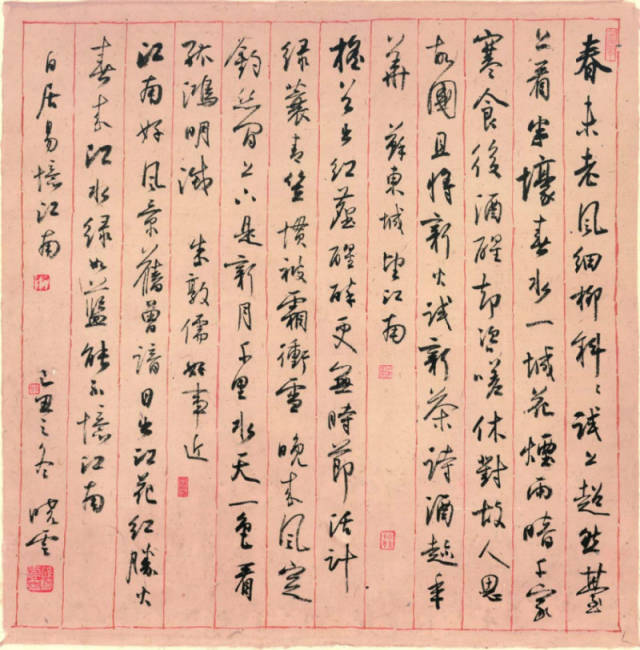 春未老風細柳斜〻試上超然臺
上看半壕春水一城花煙雨暗千家
寒食後酒醒却咨嗟休對故人思
故國且將新火試新茶詩酒趁年
華 蘇東坡望江南
搖首出紅塵醒醉更無時節活計
綠蓑青笠慣披霜衝雪 晚來風定
釣絲閒上下是新月千里水天一色看
孤鴻明滅 朱敦儒好事近
江南好風景舊曾諳日出江花紅勝火
春來江水綠如藍能不憶江南
白居易憶江南 己丑之冬 曉雲